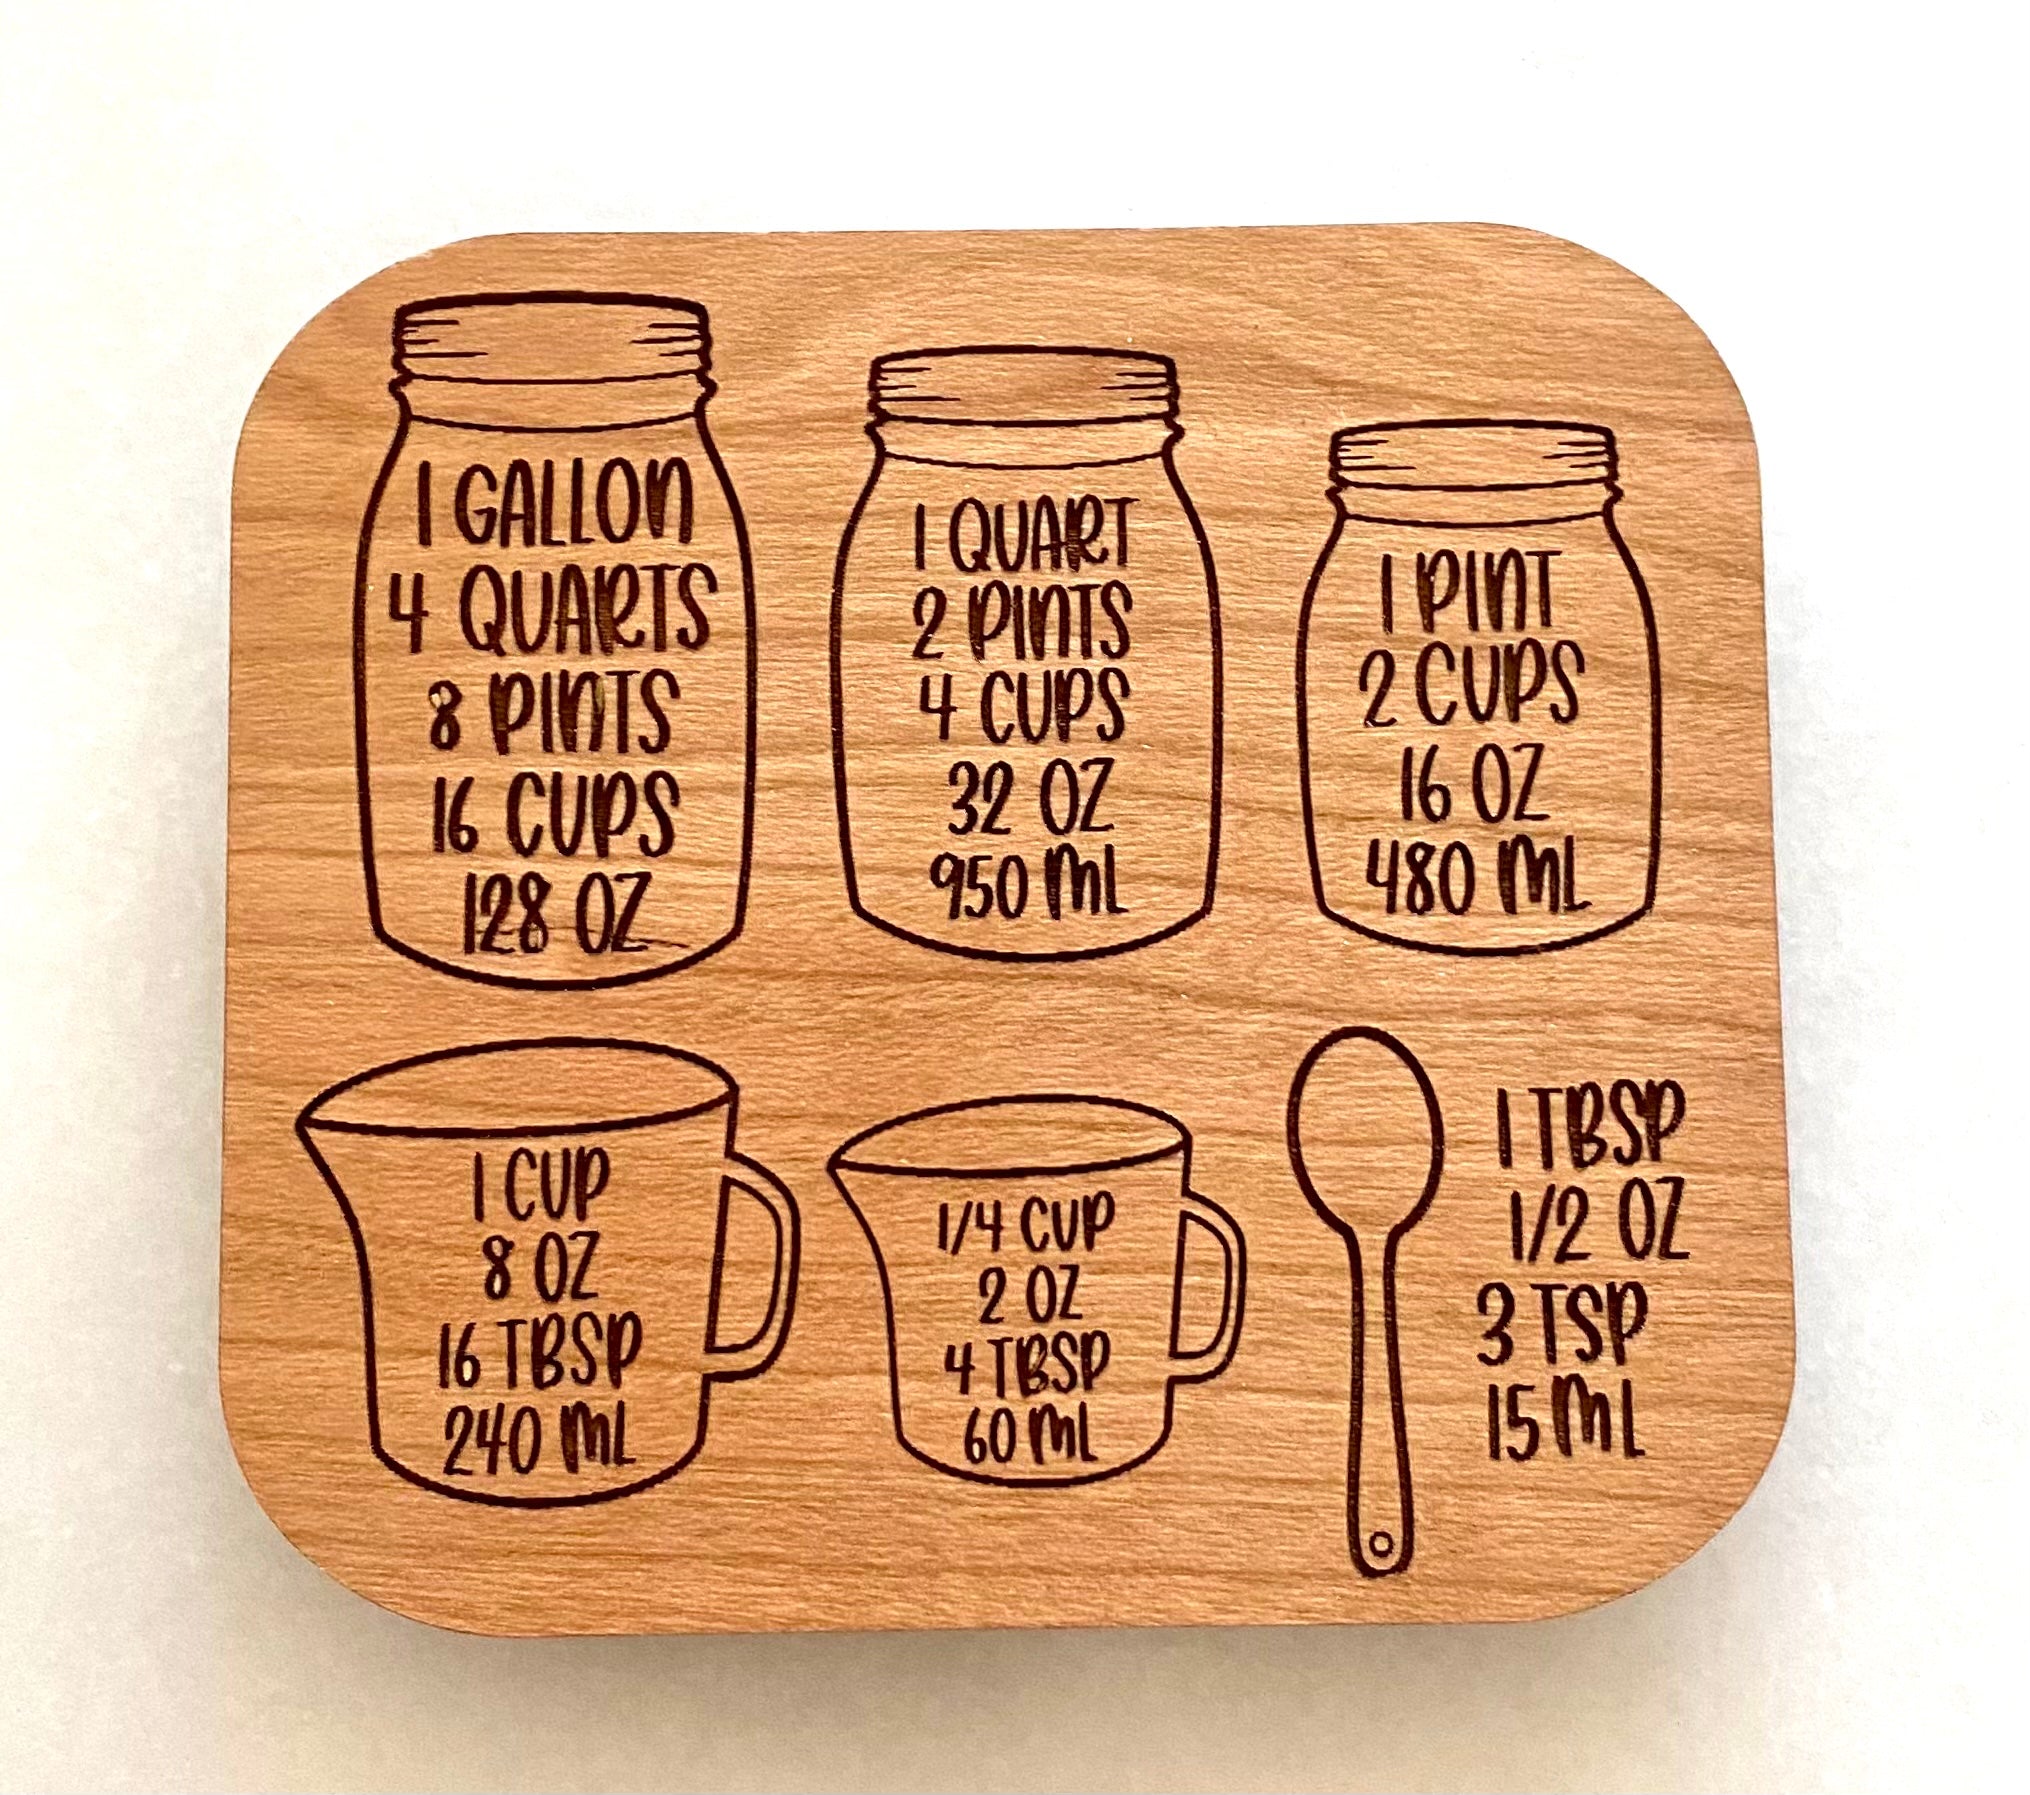 1 GALLON
4 QUARTS
8 PINTS
16 CUPS
128 OZ
1 QUART
2 PINTS
4 CUPS
32 OZ
950 ML
1 PINT
2 CUPS
16 OZ
480 ML
1 CUP
8 OZ
16 TBSP
240 ML
1/4 CUP
2 OZ
4 TBSP
60 ML
1 TBSP
1/2 OZ
3 TSP
15 ML